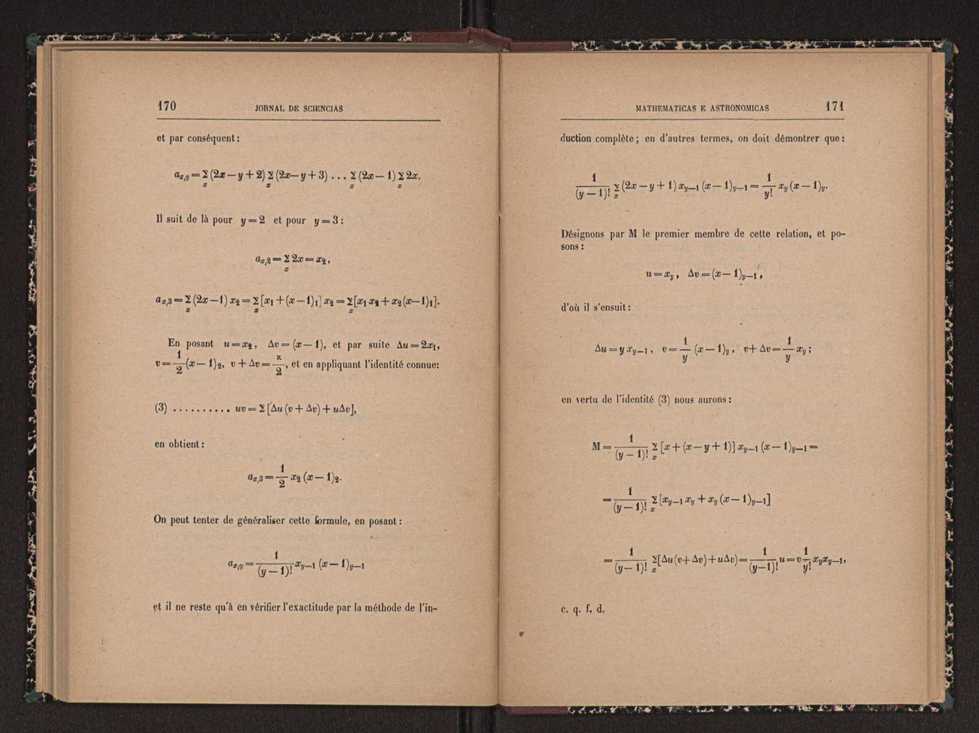 170 JORNAL DE SCIENCIAS
et par conséquent:
aₓ,ᵧ = Σₓ (2x — y + 2) Σₓ (2x — y + 3) ... Σₓ (2x — 1) Σₓ 2x.
Il suit de là pour y = 2 et pour y = 3:
aₓ,₂ = Σₓ 2x = x₂,
aₓ,₃ = Σₓ (2x — 1) x₂ = Σₓ [x₁ + (x — 1)₁] x₂ = Σₓ [x₁ x₂ + x₂ (x — 1)₁].
En posant u = x₂, Δv = (x — 1), et par suite Δu = 2x₁,
v = 1/2 (x — 1)₂, v + Δv = x/2, et en appliquant l'identité connue:
(3) .......... uv = Σ [Δu (v + Δv) + uΔv],
en obtient:
aₓ,₃ = 1/2 x₂ (x — 1)₂.
On peut tenter de généraliser cette formule, en posant:
aₓ,ᵧ = 1/(y — 1)! xᵧ₋₁ (x — 1)ᵧ₋₁
et il ne reste qu'à en vérifier l'exactitude par la méthode de l'in-
MATHEMATICAS E ASTRONOMICAS 171
duction complète; en d'autres termes, on doit démontrer que:
1/(y — 1)! Σₓ (2x — y + 1) xᵧ₋₁ (x — 1)ᵧ₋₁ = 1/y! xᵧ (x — 1)ᵧ.
Désignons par M le premier membre de cette relation, et po-
sons:
u = xᵧ, Δv = (x — 1)ᵧ₋₁,
d'où il s'ensuit:
Δu = y xᵧ₋₁, v = 1/y (x — 1)ᵧ, v + Δv = 1/y xᵧ;
en vertu de l'identité (3) nous aurons:
M = 1/(y — 1)! Σₓ [x + (x — y + 1)] xᵧ₋₁ (x — 1)ᵧ₋₁ =
= 1/(y — 1)! Σₓ [xᵧ₋₁ xᵧ + xᵧ (x — 1)ᵧ₋₁]
= 1/(y — 1)! Σₓ [Δu (v + Δv) + uΔv) = 1/(y — 1)! u = v 1/y! xᵧxᵧ₋₁,
c. q. f. d.